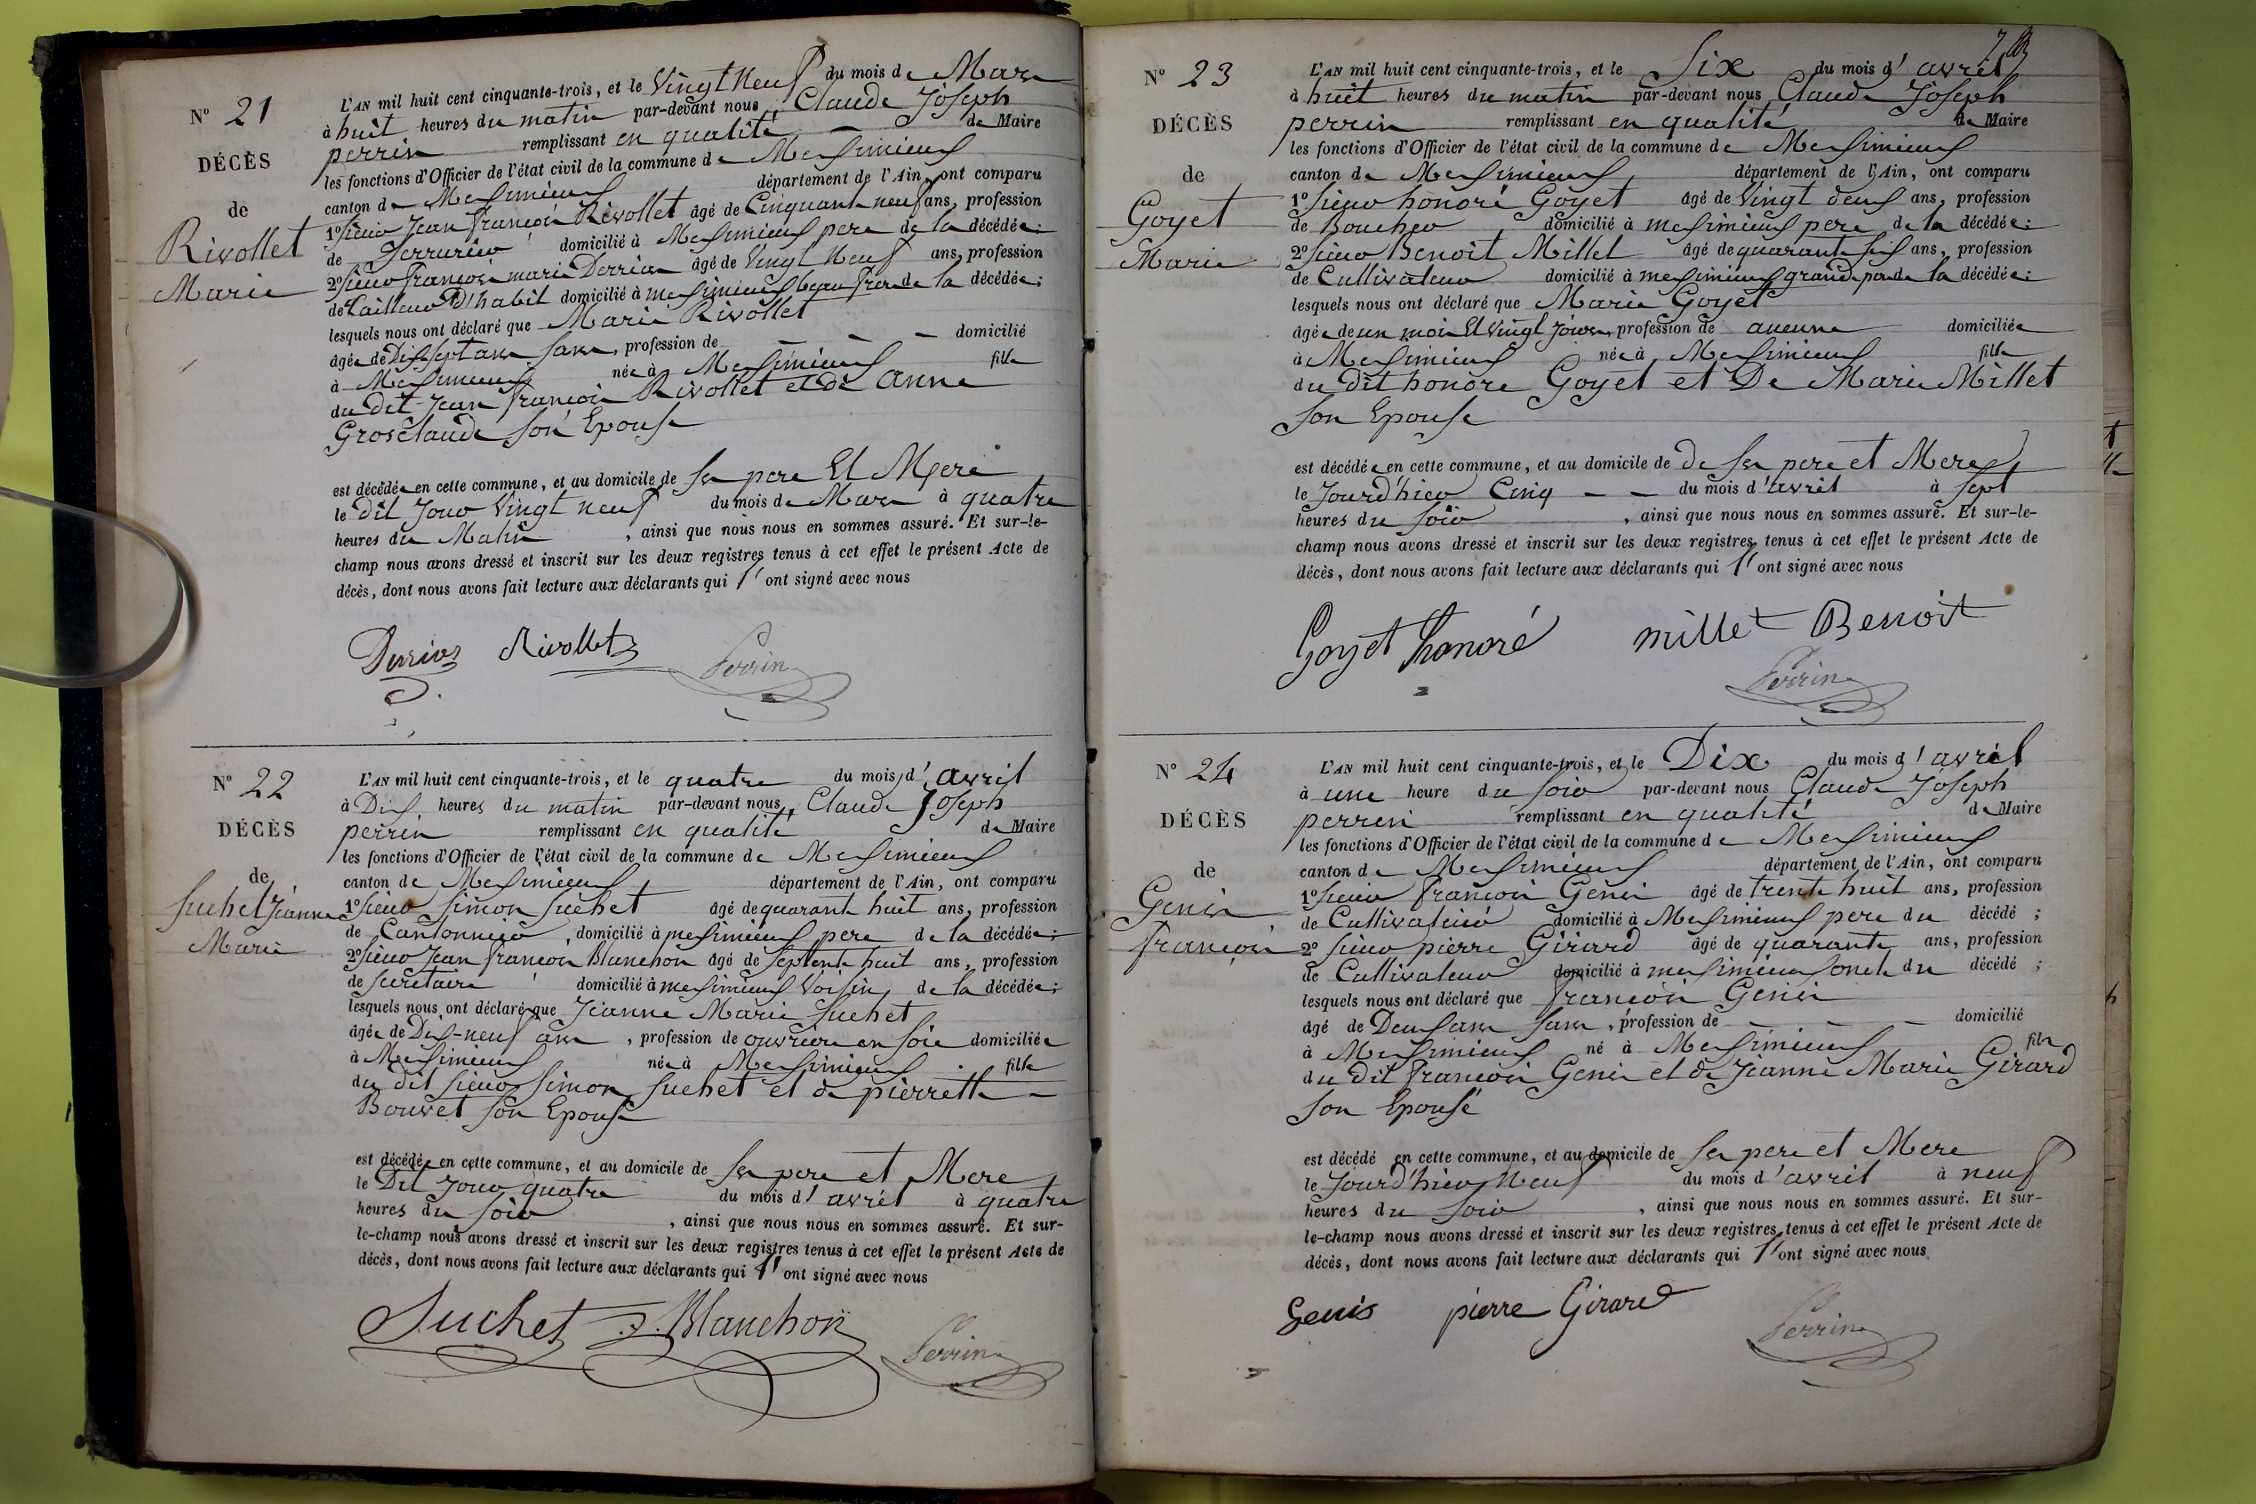 N° 21
DÉCÈS
de
Rivollet
Marie
L'AN mil huit cent cinquante-trois, et le Vingt Neuf du mois de Mars
à huit heures du matin par-devant nous Claude Joseph
perrin remplissant en qualité de Maire
les fonctions d'Officier de l'état civil de la commune de Messimieux
canton de Messimieux département de l'Ain, ont comparu
1° Sieur Jean françois Rivollet âgé de Cinquante neuf ans, profession
de Serrurier domicilié à Messimieux pere de la décédée;
2° Sieur françois marie Derrias âgé de Vingt Neuf ans, profession
de Tailleur D'habit domicilié à messimieux beau frere de la décédée;
lesquels nous ont déclaré que Marie Rivollet
âgée de Dix sept ans sans, profession de — — — domicilié
à Messimieux née à Messimieux fille
du Dit Jean françois Rivollet et de anne
Grosclaude son Epouse
est décédée en cette commune, et au domicile de Ses pere Et Mere
le dit Jour Vingt neuf du mois de Mars à quatre
heures du Matin, ainsi que nous nous en sommes assuré. Et sur-le-
champ nous avons dressé et inscrit sur les deux registres tenus à cet effet le présent Acte de
décès, dont nous avons fait lecture aux déclarants qui l'ont signé avec nous
Derrias Rivollet Perrin
N° 22
DÉCÈS
de
Suchet Jeanne
Marie
L'AN mil huit cent cinquante-trois, et le quatre du mois d'avril
à Dix heures du matin par-devant nous Claude Joseph
perrin remplissant en qualité de Maire
les fonctions d'Officier de l'état civil de la commune de Messimieux
canton de Messimieux département de l'Ain, ont comparu
1° Sieur Simon Suchet âgé de quarante huit ans, profession
de Cantonnier, domicilié à messimieux pere de la décédée;
2° Sieur Jean françois Blanchon âgé de Septente huit ans, profession
de Secretaire domicilié à messimieux Voisin de la décédée;
lesquels nous ont déclaré que Jeanne Marie Suchet
âgée de Dix-neuf ans, profession de ouvriere en soie domiciliée
à Messimieux née à Messimieux fille
du dit Sieur Simon Suchet et de pierrette —
Bouvet son Epouse
est décédée en cette commune, et au domicile de Ses pere et Mere
le Dit Jour quatre du mois d'avril à quatre
heures du soir, ainsi que nous nous en sommes assuré. Et sur-
le-champ nous avons dressé et inscrit sur les deux registres tenus à cet effet le présent Acte de
décès, dont nous avons fait lecture aux déclarants qui l'ont signé avec nous
Suchet J. Blanchon Perrin
N° 23
DÉCÈS
de
Goyet
Marie
L'AN mil huit cent cinquante-trois, et le Six du mois d'avril
à huit heures du matin par-devant nous Claude Joseph
perrin remplissant en qualité de Maire
les fonctions d'Officier de l'état civil de la commune de Messimieux
canton de Messimieux département de l'Ain, ont comparu
1° Sieur honoré Goyet âgé de Vingt deux ans, profession
de Boucher domicilié à messimieux pere de la décédée;
2° Sieur Benoit Millet âgé de quarante six ans, profession
de Cultivateur domicilié à messimieux grand pere de la décédée;
lesquels nous ont déclaré que Marie Goyet
âgée de un mois Et Vingt Jours, profession de aucune domiciliée
à Messimieux née à Messimieux fille
du dit honore Goyet et De Marie Millet
Son Epouse
est décédée en cette commune, et au domicile de de Ses pere et Mere
le Jourd'hier Cinq — — du mois d'avril à sept
heures du soir, ainsi que nous nous en sommes assuré. Et sur-le-
champ nous avons dressé et inscrit sur les deux registres tenus à cet effet le présent Acte de
décès, dont nous avons fait lecture aux déclarants qui l'ont signé avec nous
Goyet honoré millet Benoit
Perrin
N° 24
DÉCÈS
de
Genis
françois
L'AN mil huit cent cinquante-trois, et le Dix du mois d'avril
à une heure du soir par-devant nous Claude Joseph
perrin remplissant en qualité de Maire
les fonctions d'Officier de l'état civil de la commune de Messimieux
canton de Messimieux département de l'Ain, ont comparu
1° Sieur françois Genis âgé de trente huit ans, profession
de Cultivateur domicilié à Messimieux pere du décédé;
2° Sieur pierre Girard âgé de quarante ans, profession
de Cultivateur domicilié à messimieux oncle du décédé;
lesquels nous ont déclaré que françois Genis
âgé de Deux ans sans, profession de — — — domicilié
à Messimieux né à Messimieux fils
du dit françois Genis et de Jeanne Marie Girard
son Epouse
est décédé en cette commune, et au domicile de Ses pere et Mere
le Jourd'hier Neuf du mois d'avril à neuf
heures du soir, ainsi que nous nous en sommes assuré. Et sur-
le-champ nous avons dressé et inscrit sur les deux registres tenus à cet effet le présent Acte de
décès, dont nous avons fait lecture aux déclarants qui l'ont signé avec nous
Genis pierre Girard Perrin